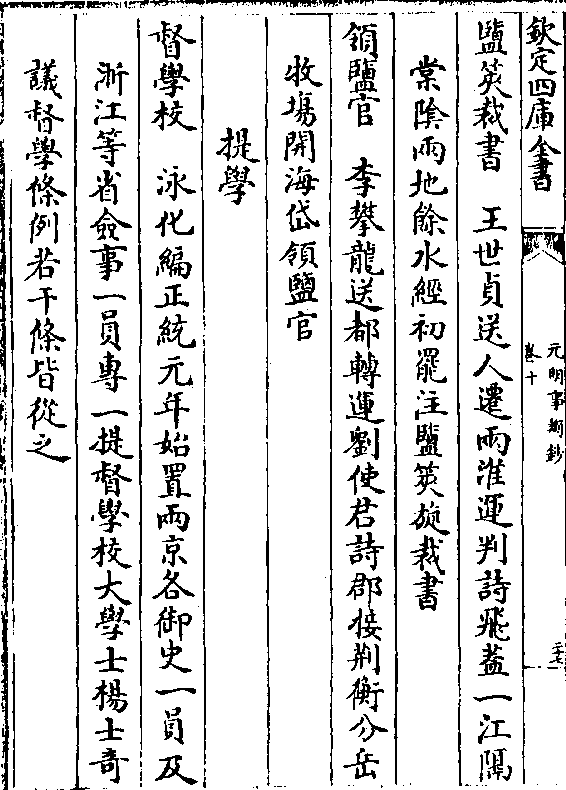 欽定四庫全書
元明事類鈔
卷十
二十七
鹽筴裁書　王世貞送人遷兩淮運判詩飛蓋一江隔
棠陰兩地餘水經初罷注鹽筴旋裁書
領鹽官　李攀龍送都轉運劉使君詩郡接荊衡分岳
牧場開海岱領鹽官
提學
督學校　泳化編正統元年始置兩京各御史一員及
浙江等省僉事一員專一提督學校大學士楊士奇
議督學條例若干條皆從之